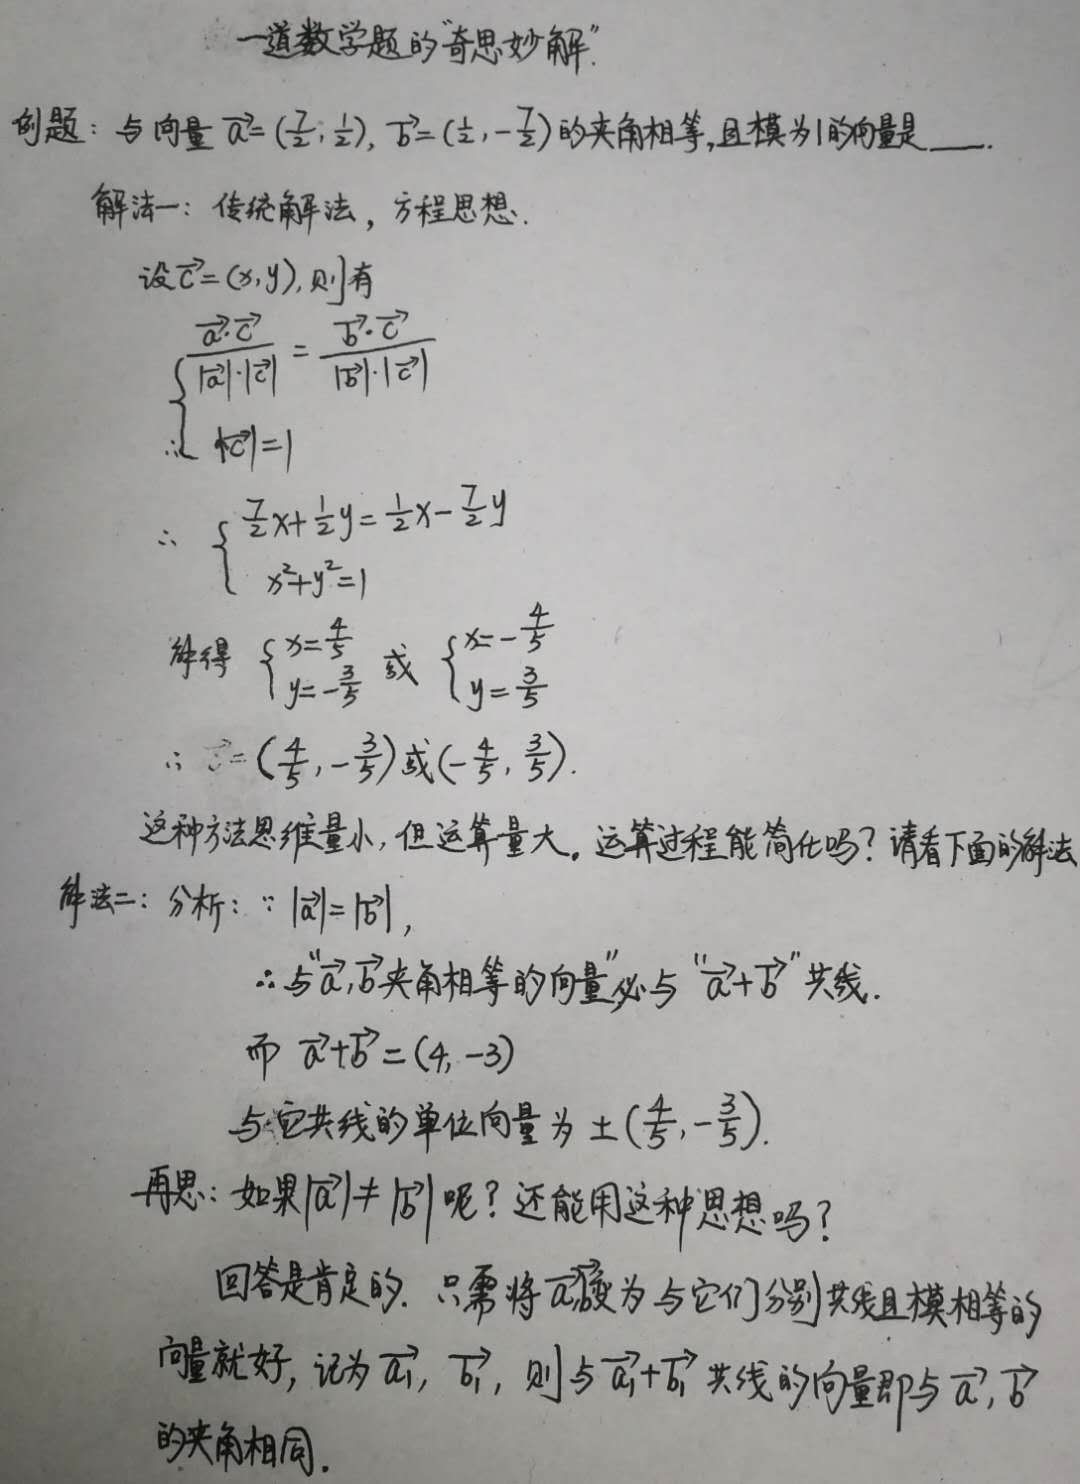 一道数学题的"奇思妙解".
例题: 与向量 a⃗=(7/2, 1/2), b⃗=(1/2, -7/2)的夹角相等,且模为1的向量是___.
解法一: 传统解法, 方程思想.
设c⃗=(x,y),则有
{ a⃗·c⃗/|a⃗|·|c⃗| = b⃗·c⃗/|b⃗|·|c⃗|
∴ |c⃗|=1
∴ { 7/2x+1/2y=1/2x-7/2y
x²+y²=1
解得 { x=4/5 y=-3/5 或 { x=-4/5 y=3/5
∴ c⃗=(4/5, -3/5)或(-4/5, 3/5).
这种方法思维量小,但运算量大。运算过程能简化吗?请看下面的解法
解法二: 分析: ∵ |a⃗|=|b⃗|,
∴与"a⃗,b⃗夹角相等的向量"必与"a⃗+b⃗"共线.
而 a⃗+b⃗=(4,-3)
与它共线的单位向量为 ±(4/5, -3/5).
再思: 如果|a⃗|≠|b⃗|呢?还能用这种思想吗?
回答是肯定的. 只需将a⃗,b⃗变为与它们分别共线且模相等的
向量就好, 记为a₁⃗, b₁⃗, 则与a₁⃗+b₁⃗共线的向量即与a⃗, b⃗
的夹角相同.